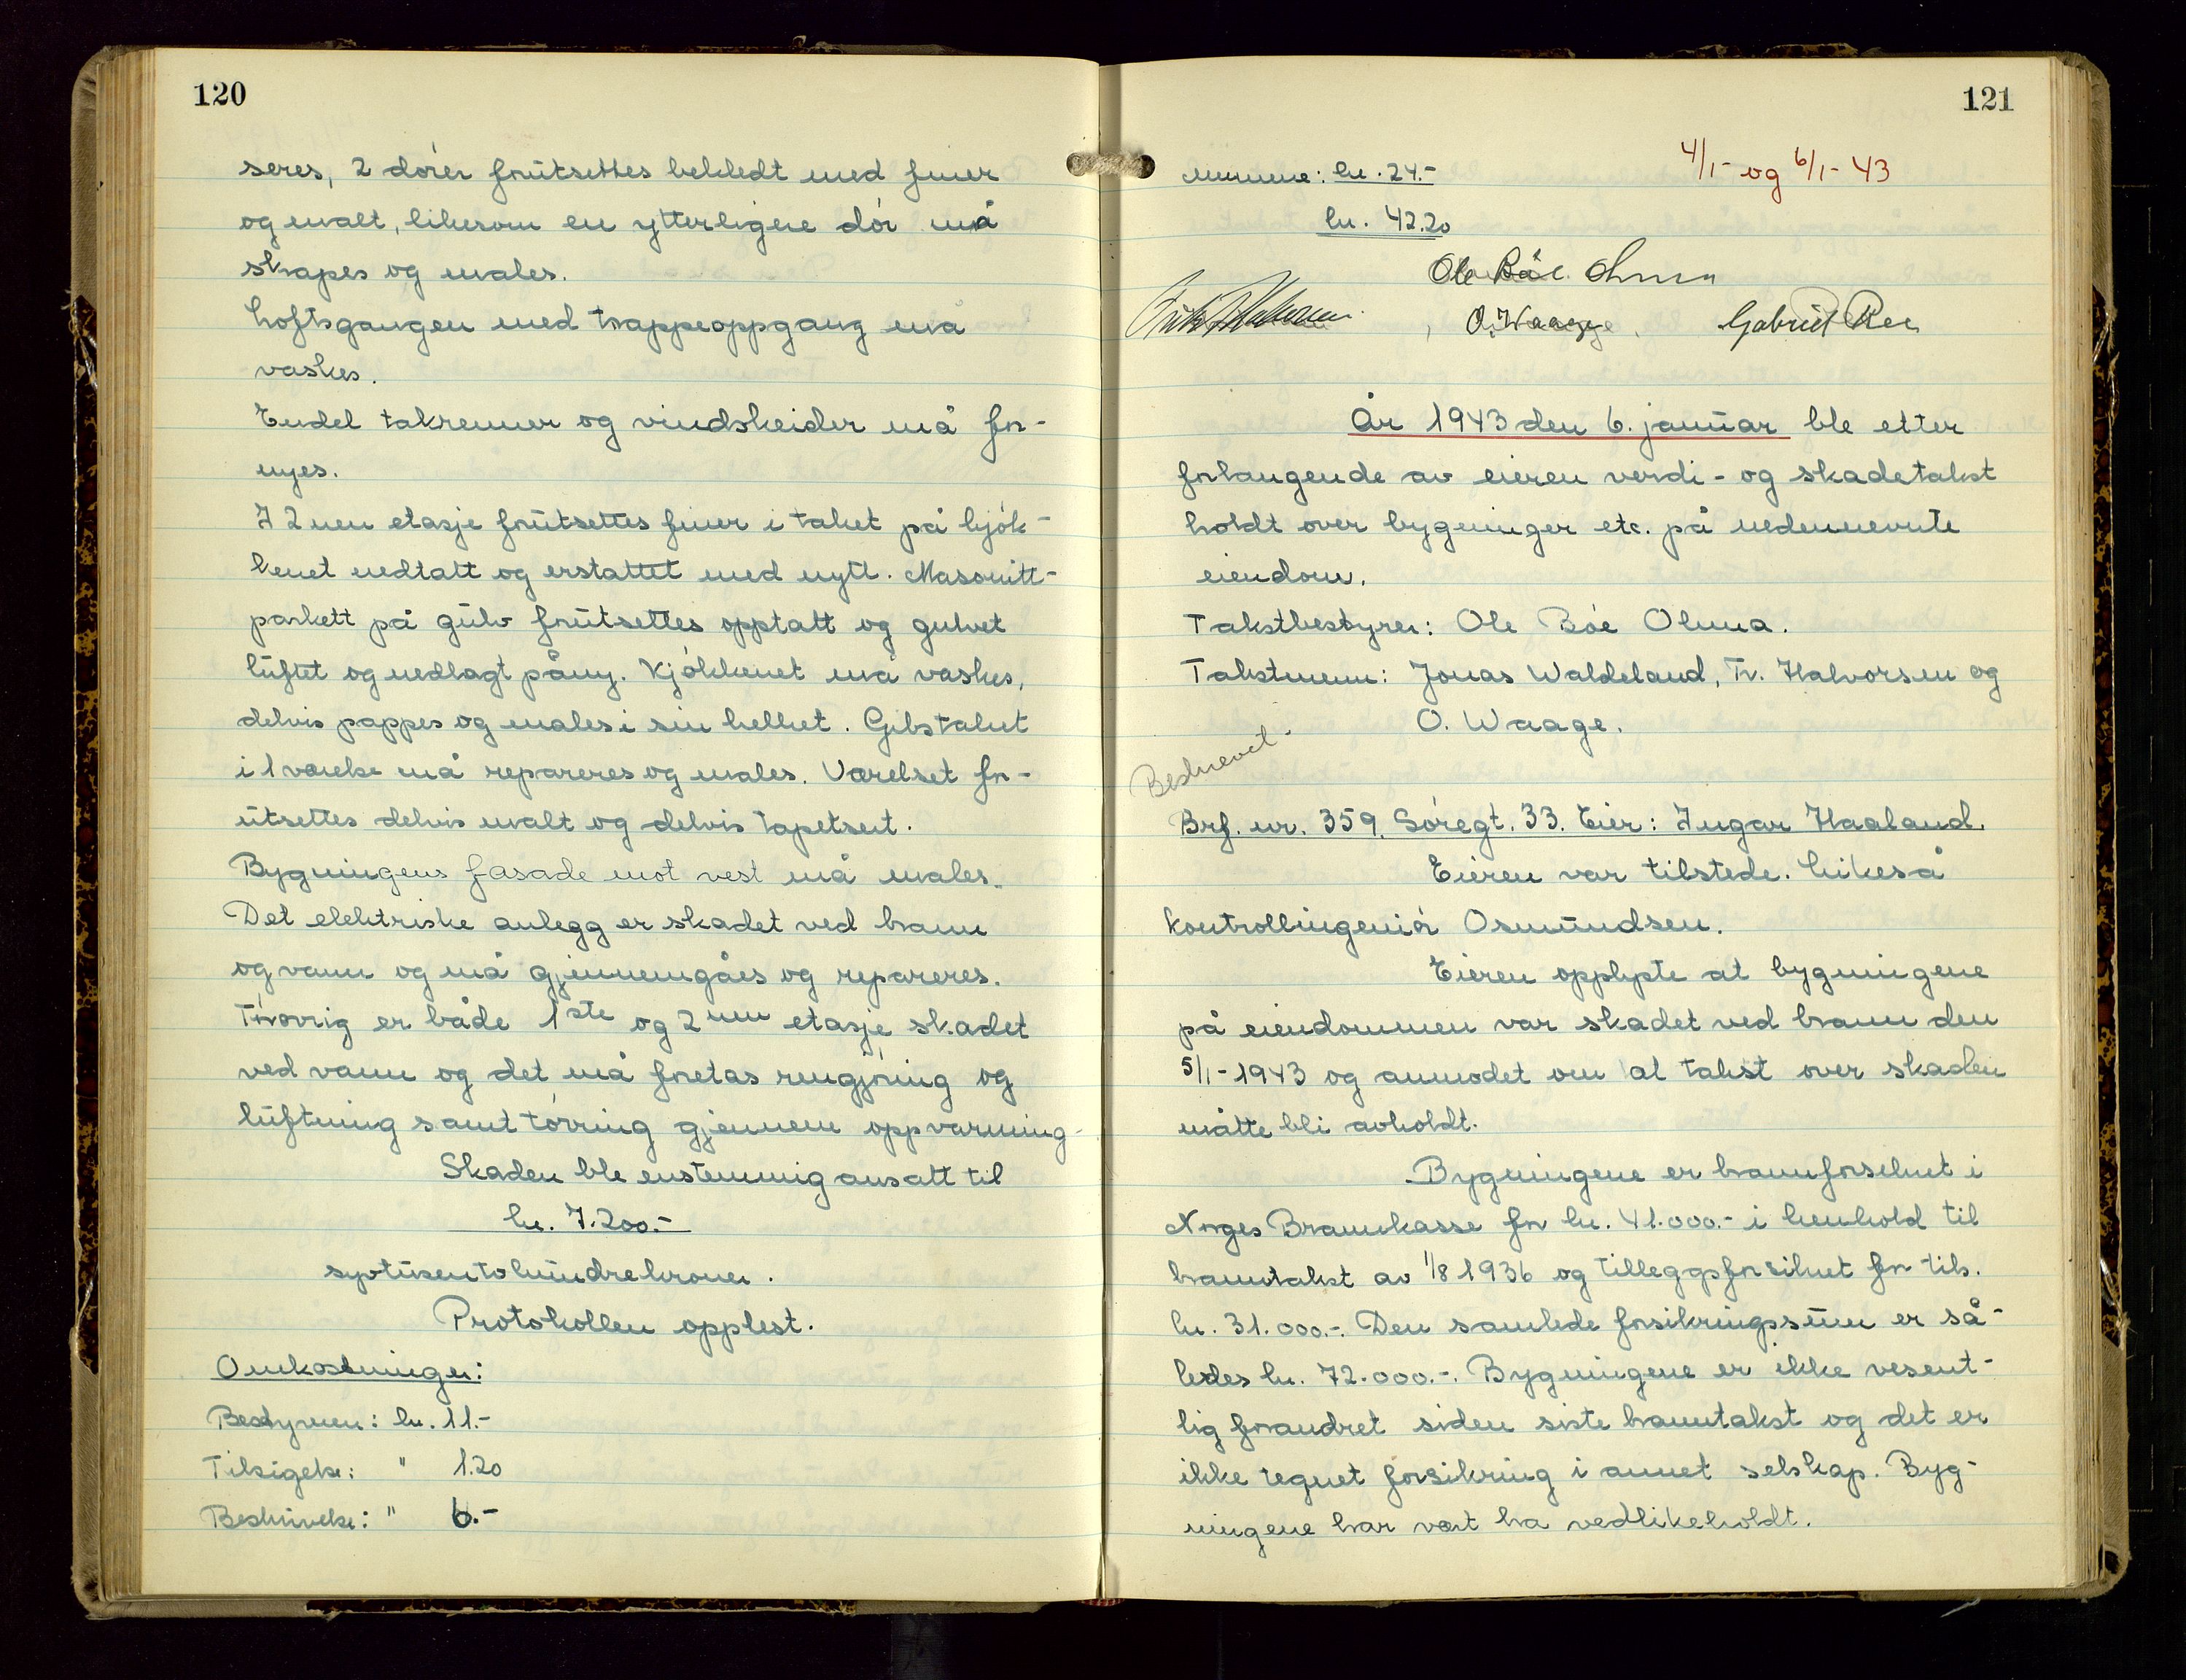 120
seres, 2 dører forutsettes bekledt med finer
og malt, likesom en ytterligere dør må
skrapes og males.
Loftsgangen med trappeoppgang må
vaskes.
Endel takrenner og vindskeider må for-
nyes.
I 2nen etasje forutsettes finer i taket på kjøk-
kenet nedtatt og erstattet med nytt. Masonitt-
parkett på gulv forutsettes opptatt og gulvet
luftet og nedlagt påny. Kjøkkenet må vaskes,
delvis pappes og males i sin helhet. Gibstaket
i 1 værelse må repareres og males. Værelset for-
utsettes delvis malt og delvis tapetsert.
Bygningens fasade mot vest må males.
Det elektriske anlegg er skadet ved brann
og vann og må gjennemgåes og repareres.
Forøvrig er både 1ste og 2nen etasje skadet
ved vann og det må foretas rengjøring og
luftning samt tørring gjennem oppvarming.
Skaden ble enstemmig ansatt til
kr. 7.200.-
syvtusentohundrekroner.
Protokollen opplest.
Omkostninger:
Bestyreren: kr. 11.-
Tilsigelse: " 1.20
Beskrivelse: " 6.-
121
4/1- og 6/1- 43
mennene: kr. 24.-
kr. 42.20
Ole Bøe Olsen
O. Waage, Gabriel
År 1943 den 6. januar ble etter
forlangende av eieren verdi- og skadetakst
holdt over bygninger etc. på nedennevnte
eiendom.
Takstbestyrer: Ole Bøe Olsen.
Takstmenn: Jonas Waldeland, Fr. Halvorsen og
O. Waage.
Beskrevet.
Brf. nr. 359. Søregt. 33. Eier: Ingar Haaland.
Eieren var tilstede. Likeså
kontrollingeniør Osmundsen.
Eieren opplyste at bygningene
på eiendommen var skadet ved brann den
5/1-1943 og anmodet om at takst over skaden
måtte bli avholdt.
Bygningene er brannforsikret i
Norges Brannkasse for kr. 41.000.- i henhold til
branntakst av 1/8 1936 og tilleggsforsikret for tils.
kr. 31.000.-. Den samlede forsikringssum er så-
ledes kr. 72.000.-. Bygningene er ikke vesent-
lig forandret siden siste branntakst og det er
ikke tegnet forsikring i annet selskap. Byg-
ningene har vært bra vedlikeholdt.